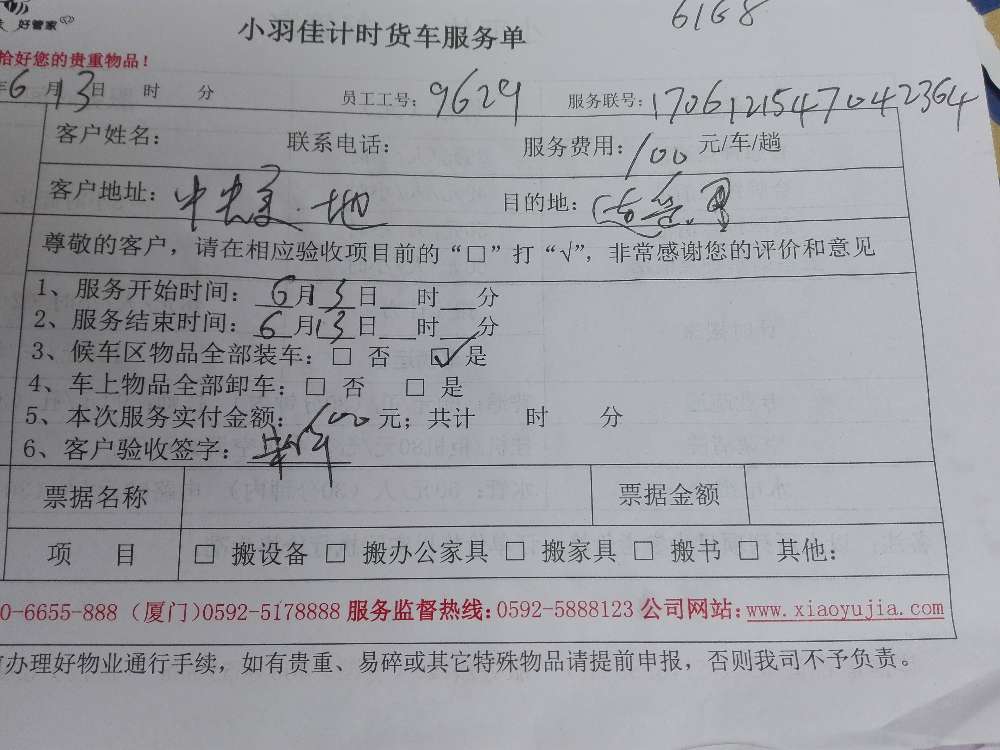 6168
好管家
小羽佳计时货车服务单
恰好您的贵重物品！
年6月13日 时 分 员工工号：9629 服务联号：1706121547042364
客户姓名： 联系电话： 服务费用：100元/车/趟
客户地址：中央美地 目的地：
尊敬的客户，请在相应验收项目前的“□”打“√”，非常感谢您的评价和意见
1、服务开始时间：6月13日 时 分
2、服务结束时间：6月13日 时 分
3、候车区物品全部装车：□ 否 ☑ 是
4、车上物品全部卸车：□ 否 □ 是
5、本次服务实付金额：100元；共计 时 分
6、客户验收签字：
票据名称 票据金额
项 目 □ 搬设备 □ 搬办公家具 □ 搬家具 □ 搬书 □ 其他：
0-6655-888（厦门)0592-5178888 服务监督热线：0592-5888123 公司网站：www.xiaoyujia.com
办理好物业通行手续，如有贵重、易碎或其它特殊物品请提前申报，否则我司不予负责。